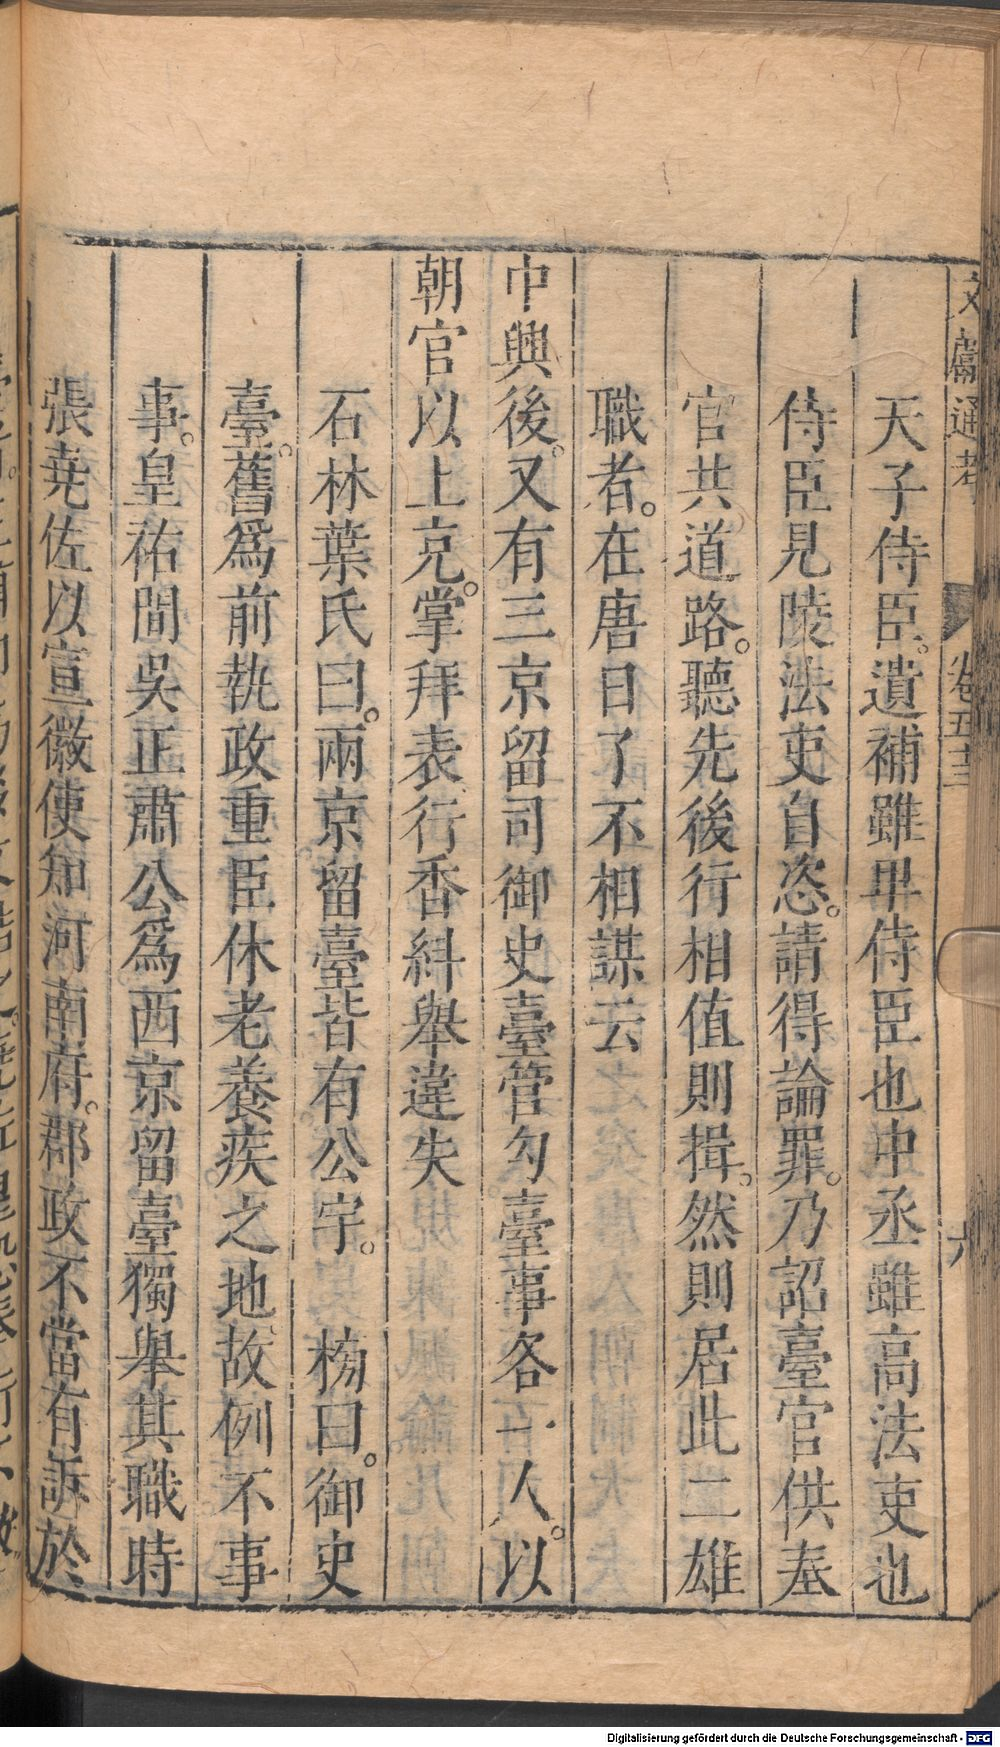 文獻通考 卷五十三 六
天子侍臣。遺補雖卑侍臣也中丞雖高法吏也
侍臣見陵法吏自恣。請得論罪。乃詔臺官供奉
官共道路。聽先後行相值則揖。然則居此二雄
職者。在唐日了不相謀云
中興後。又有三京留司御史臺管勾臺事各一人。以
朝官以上充。掌拜表行香糾舉違失
石林葉氏曰。兩京留臺皆有公宇。榜曰。御史
臺。舊爲前執政重臣休老養疾之地。故例不事
事。皇祐間吳正肅公爲西京留臺獨舉其職時
張堯佐以宣徽使知河南府。郡政不當有訴於
Digitalisierung gefördert durch die Deutsche Forschungsgemeinschaft - DFG